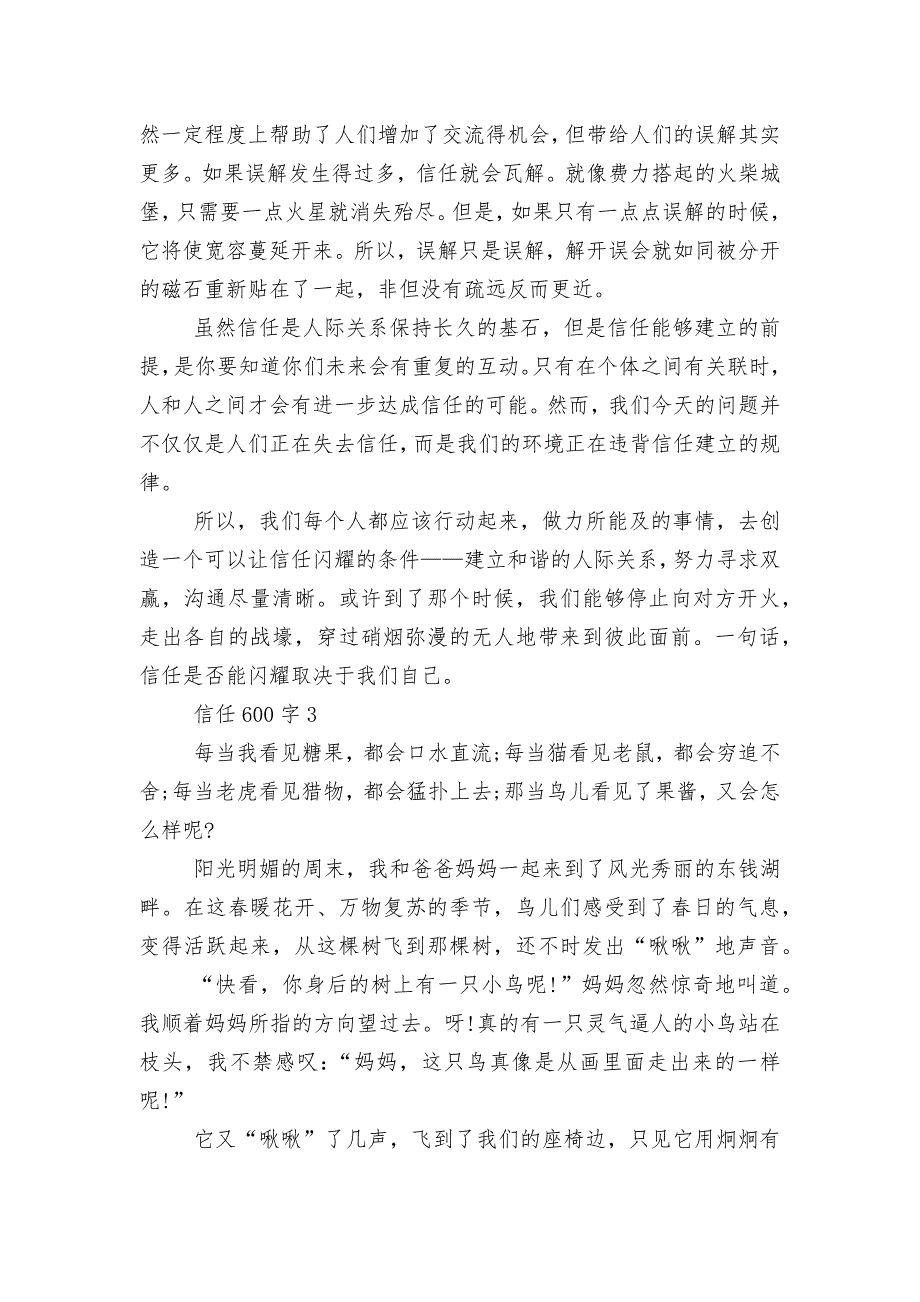 然一定程度上帮助了人们增加了交流得机会，但带给人们的误解其实
更多。如果误解发生得过多，信任就会瓦解。就像费力搭起的火柴城
堡，只需要一点火星就消失殆尽。但是，如果只有一点点误解的时候，
它将使宽容蔓延开来。所以，误解只是误解，解开误会就如同被分开
的磁石重新贴在了一起，非但没有疏远反而更近。
虽然信任是人际关系保持长久的基石，但是信任能够建立的前
提，是你要知道你们未来会有重复的互动。只有在个体之间有关联时，
人和人之间才会有进一步达成信任的可能。然而，我们今天的问题并
不仅仅是人们正在失去信任，而是我们的环境正在违背信任建立的规
律。
所以，我们每个人都应该行动起来，做力所能及的事情，去创
造一个可以让信任闪耀的条件——建立和谐的人际关系，努力寻求双
赢，沟通尽量清晰。或许到了那个时候，我们能够停止向对方开火，
走出各自的战壕，穿过硝烟弥漫的无人地带来到彼此面前。一句话，
信任是否能闪耀取决于我们自己。
信任 600 字 3
每当我看见糖果，都会口水直流;每当猫看见老鼠，都会穷追不
舍;每当老虎看见猎物，都会猛扑上去;那当鸟儿看见了果酱，又会怎
么样呢?
阳光明媚的周末，我和爸爸妈妈一起来到了风光秀丽的东钱湖
畔。在这春暖花开、万物复苏的季节，鸟儿们感受到了春日的气息，
变得活跃起来，从这棵树飞到那棵树，还不时发出“啾啾”地声音。
“快看，你身后的树上有一只小鸟呢!”妈妈忽然惊奇地叫道。
我顺着妈妈所指的方向望过去。呀!真的有一只灵气逼人的小鸟站在
枝头，我不禁感叹：“妈妈，这只鸟真像是从画里面走出来的一样
呢!”
它又“啾啾”了几声，飞到了我们的座椅边，只见它用炯炯有